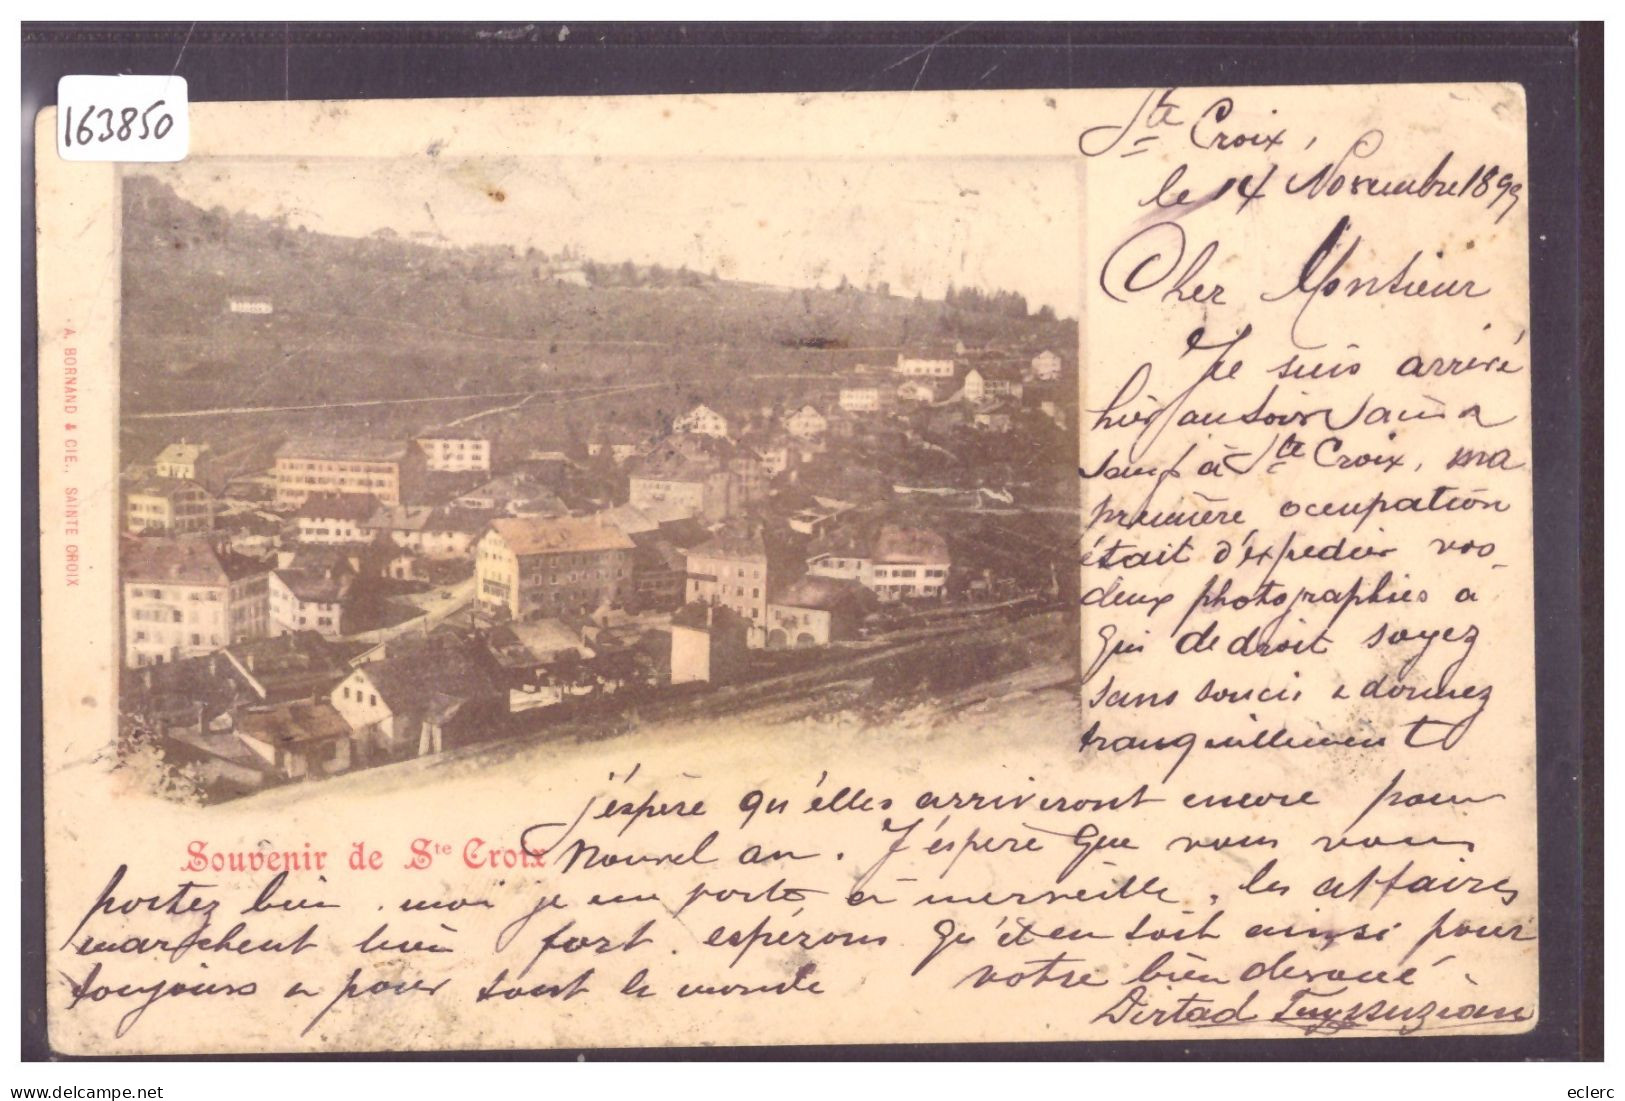 163850
Ste Croix,
le 14 Novembre 1899
Cher Monsieur
Je suis arrivé
hier au soir sain &
sauf à Ste Croix, ma
première occupation
était d'expedier vos
deux photographies a
qui de droit soyez
sans souci & dormez
tranquillement
j'éspère qu'élles arriveront encore pour
Nouvel an. J'éspère que vous vous
portez bien. moi je me porte à merveille, les affaires
marchent bien fort. espérons qu'il en soit ainsi pour
toujours & pour tout le monde
votre bien devoué
Dirtad
Souvenir de Ste Croix
A. BORNAND & CIE., SAINTE CROIX
eclerc